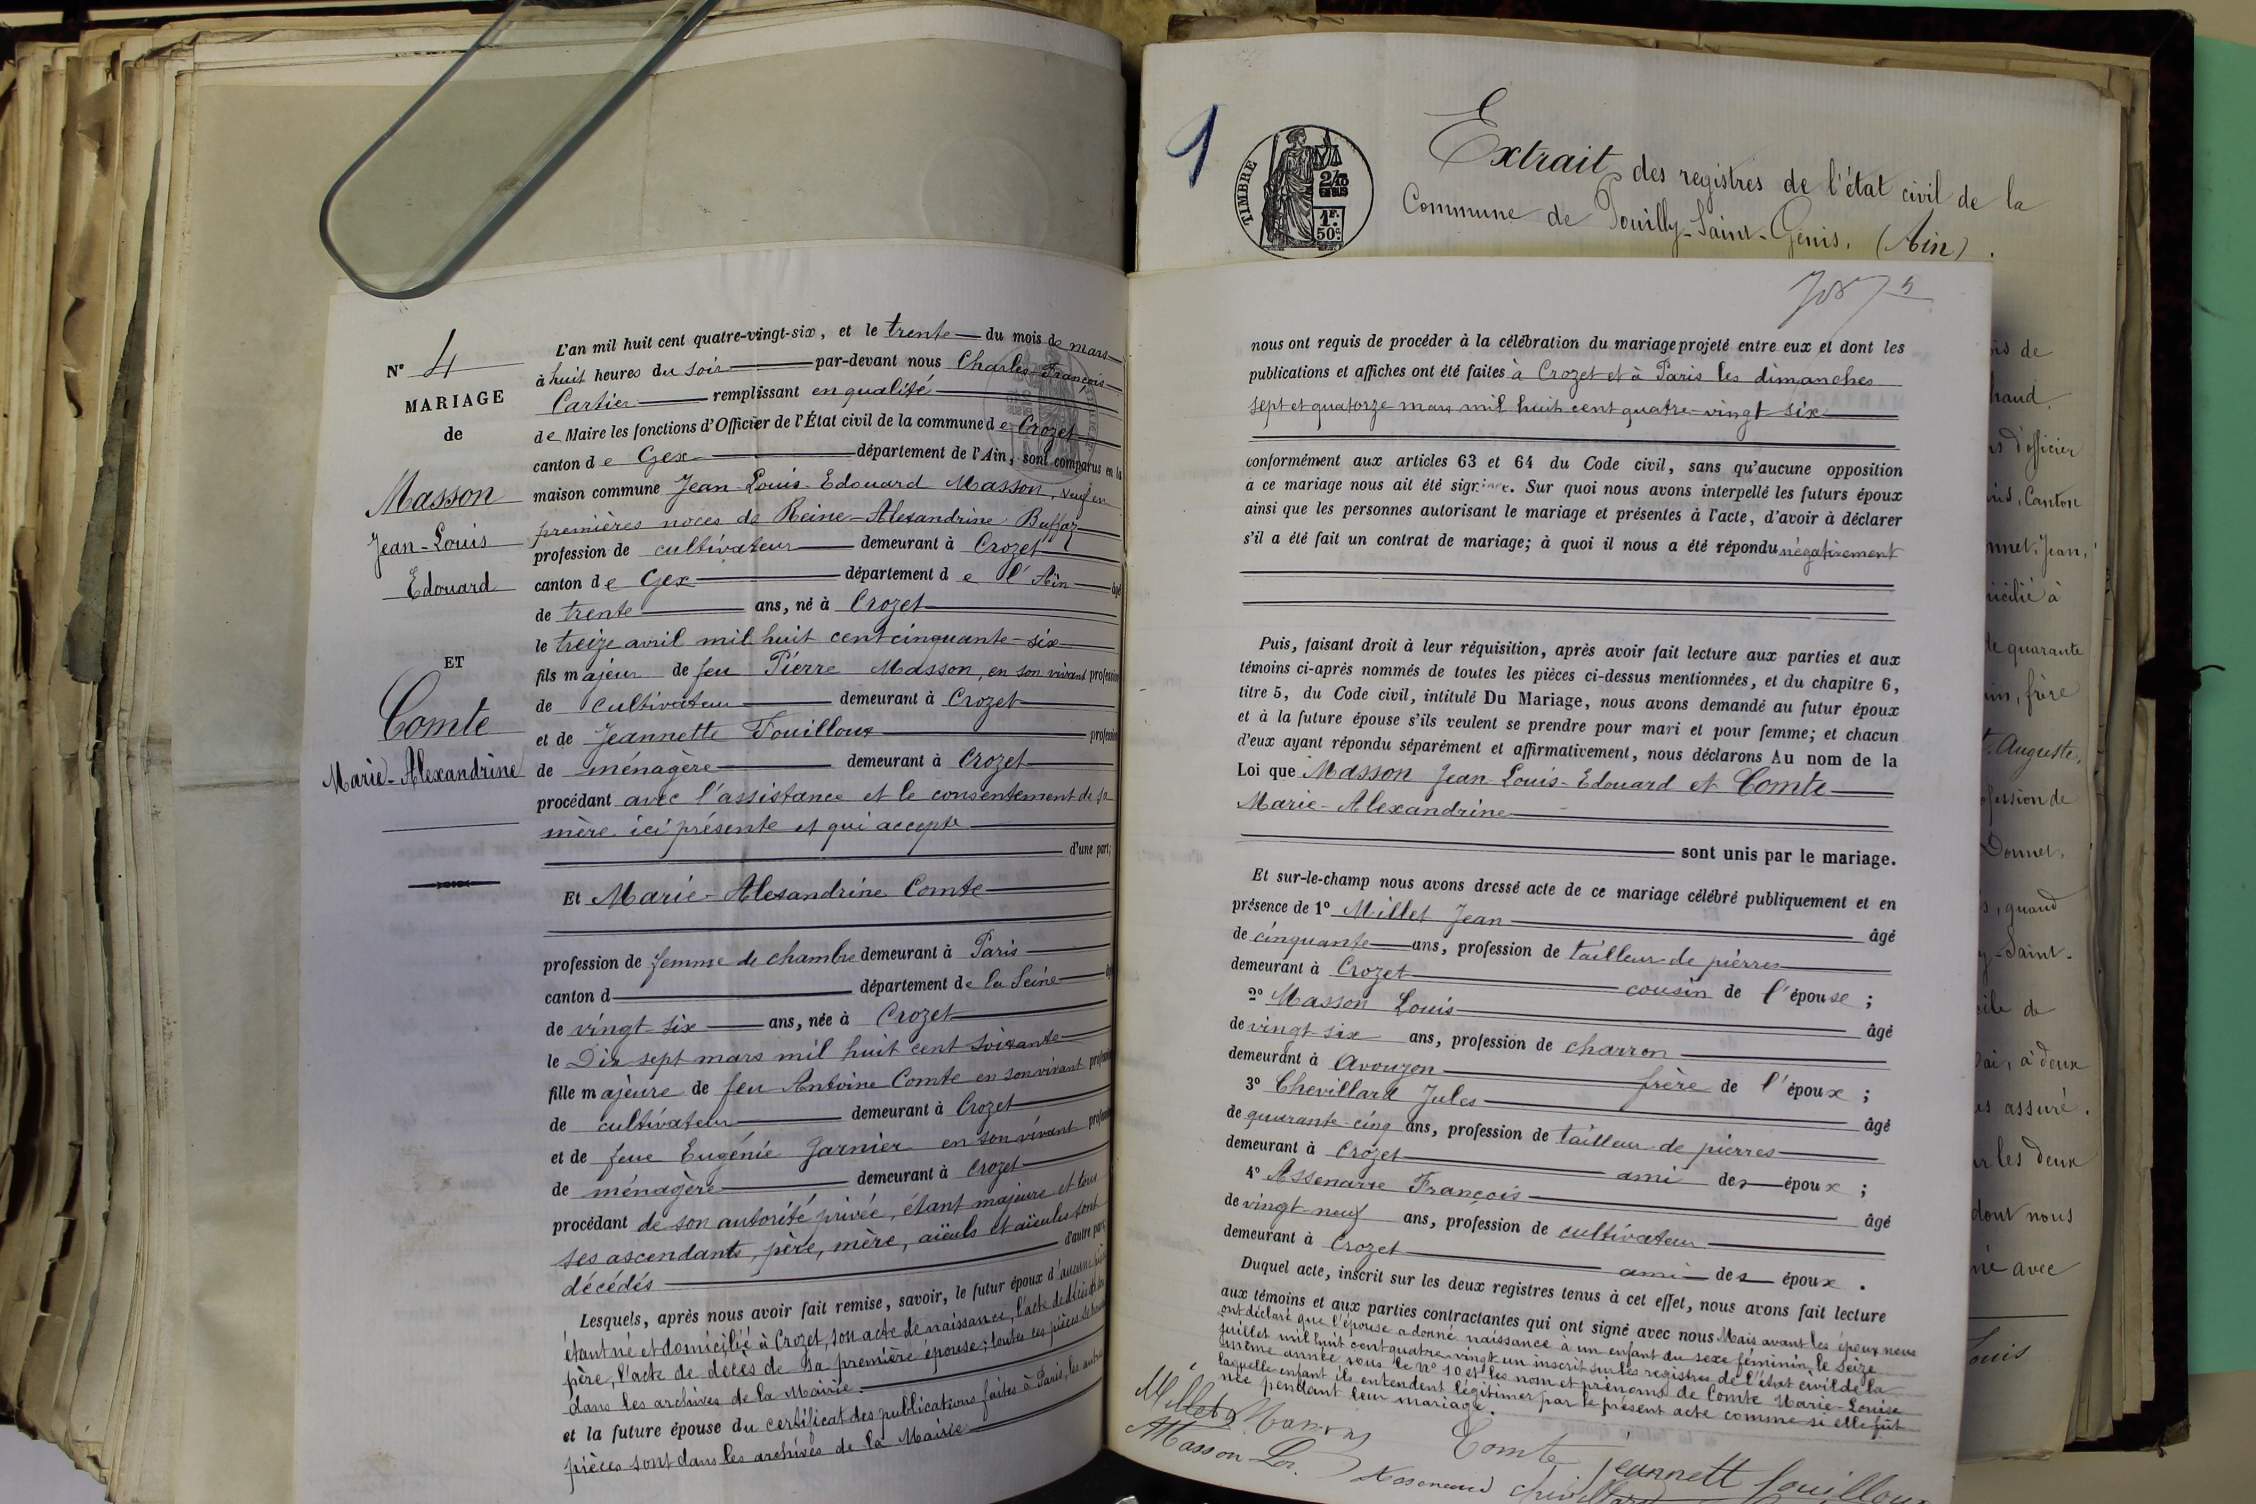 N° 4
MARIAGE
de
Masson
Jean-Louis
Edouard
ET
Comte
Marie-Alexandrine
L'an mil huit cent quatre-vingt-six, et le trente du mois de mars
à huit heures du soir par-devant nous Charles-François
Cartier remplissant en qualité
de Maire les fonctions d'Officier de l'État civil de la commune de Crozet
canton de Gex département de l'Ain, sont comparus en la
maison commune Jean-Louis-Edouard Masson, veuf en
premières noces de Reine-Alexandrine Buffaz
profession de cultivateur demeurant à Crozet
canton de Gex département de l'Ain âgé
de trente ans, né à Crozet
le treize avril mil huit cent cinquante-six
fils majeur de feu Pierre Masson, en son vivant profession
de cultivateur demeurant à Crozet
et de Jeannette Fouilloux profession
de ménagère demeurant à Crozet
procédant avec l'assistance et le consentement de sa
mère ici présente et qui accepte
d'une part;
Et Marie-Alexandrine Comte
profession de femme de chambre demeurant à Paris
canton d département de la Seine
de vingt-six ans, née à Crozet
le Dix sept mars mil huit cent soixante
fille majeure de feu Antoine Comte en son vivant
de cultivateur demeurant à Crozet
et de feue Eugénie Garnier en son vivant
de ménagère demeurant à Crozet
procédant de son autorité privée, étant majeure et tous
ses ascendants, père, mère, aïeuls et aïeules sont
décédés d'autre part
Lesquels, après nous avoir fait remise, savoir, le futur époux d'aucune
étant né et domicilié à Crozet, son acte de naissance, l'acte de décès de son
père, l'acte de décès de sa première épouse; toutes ces pièces
dans les archives de la Mairie.
et la future épouse du certificat des publications faites à Paris, les autres
pièces sont dans les archives de la Mairie
1
TIMBRE
1F.
50c
Extrait des registres de l'état civil de la
Commune de Pouilly-Saint-Genis. (Ain).
nous ont requis de procéder à la célébration du mariage projeté entre eux et dont les
publications et affiches ont été faites à Crozet et à Paris les dimanches
sept et quatorze mars mil huit cent quatre-vingt six
conformément aux articles 63 et 64 du Code civil, sans qu'aucune opposition
à ce mariage nous ait été signifiée. Sur quoi nous avons interpellé les futurs époux
ainsi que les personnes autorisant le mariage et présentes à l'acte, d'avoir à déclarer
s'il a été fait un contrat de mariage; à quoi il nous a été répondu négativement
Puis, faisant droit à leur réquisition, après avoir fait lecture aux parties et aux
témoins ci-après nommés de toutes les pièces ci-dessus mentionnées, et du chapitre 6,
titre 5, du Code civil, intitulé Du Mariage, nous avons demandé au futur époux
et à la future épouse s'ils veulent se prendre pour mari et pour femme; et chacun
d'eux ayant répondu séparément et affirmativement, nous déclarons Au nom de la
Loi que Masson Jean-Louis-Edouard et Comte
Marie-Alexandrine
sont unis par le mariage.
Et sur-le-champ nous avons dressé acte de ce mariage célébré publiquement et en
présence de 1° Millet Jean âgé
de cinquante ans, profession de tailleur de pierres
demeurant à Crozet cousin de l'épouse;
2° Masson Louis âgé
de vingt-six ans, profession de charron
demeurant à Avouzon frère de l'époux;
3° Chevillard Jules âgé
de quarante-cinq ans, profession de tailleur de pierres
demeurant à Crozet ami des époux;
4° Assenare François âgé
de vingt-neuf ans, profession de cultivateur
demeurant à Crozet ami des époux.
Duquel acte, inscrit sur les deux registres tenus à cet effet, nous avons fait lecture
aux témoins et aux parties contractantes qui ont signé avec nous Mais avant les époux nous
ont déclaré que l'épouse a donné naissance à un enfant du sexe féminin, le seize
juillet mil huit cent quatre vingt un inscrit sur les registres de l'état civil de la
même année sous le N° 10 et les nom et prénoms de Comte Marie-Louise
laquelle enfant ils entendent légitimer par le présent acte comme si elle fût
née pendant leur mariage.
Millet Masson
Comte Jeannett Fouilloux
Masson Lo.
is de
haud
d'officier
Canton
nnet, Jean,
icilié à
de quarante
frère
Auguste,
profession de
Donnet,
quand
Saint-
de
à deux
assuré.
les deux
dont nous
avec
Louis